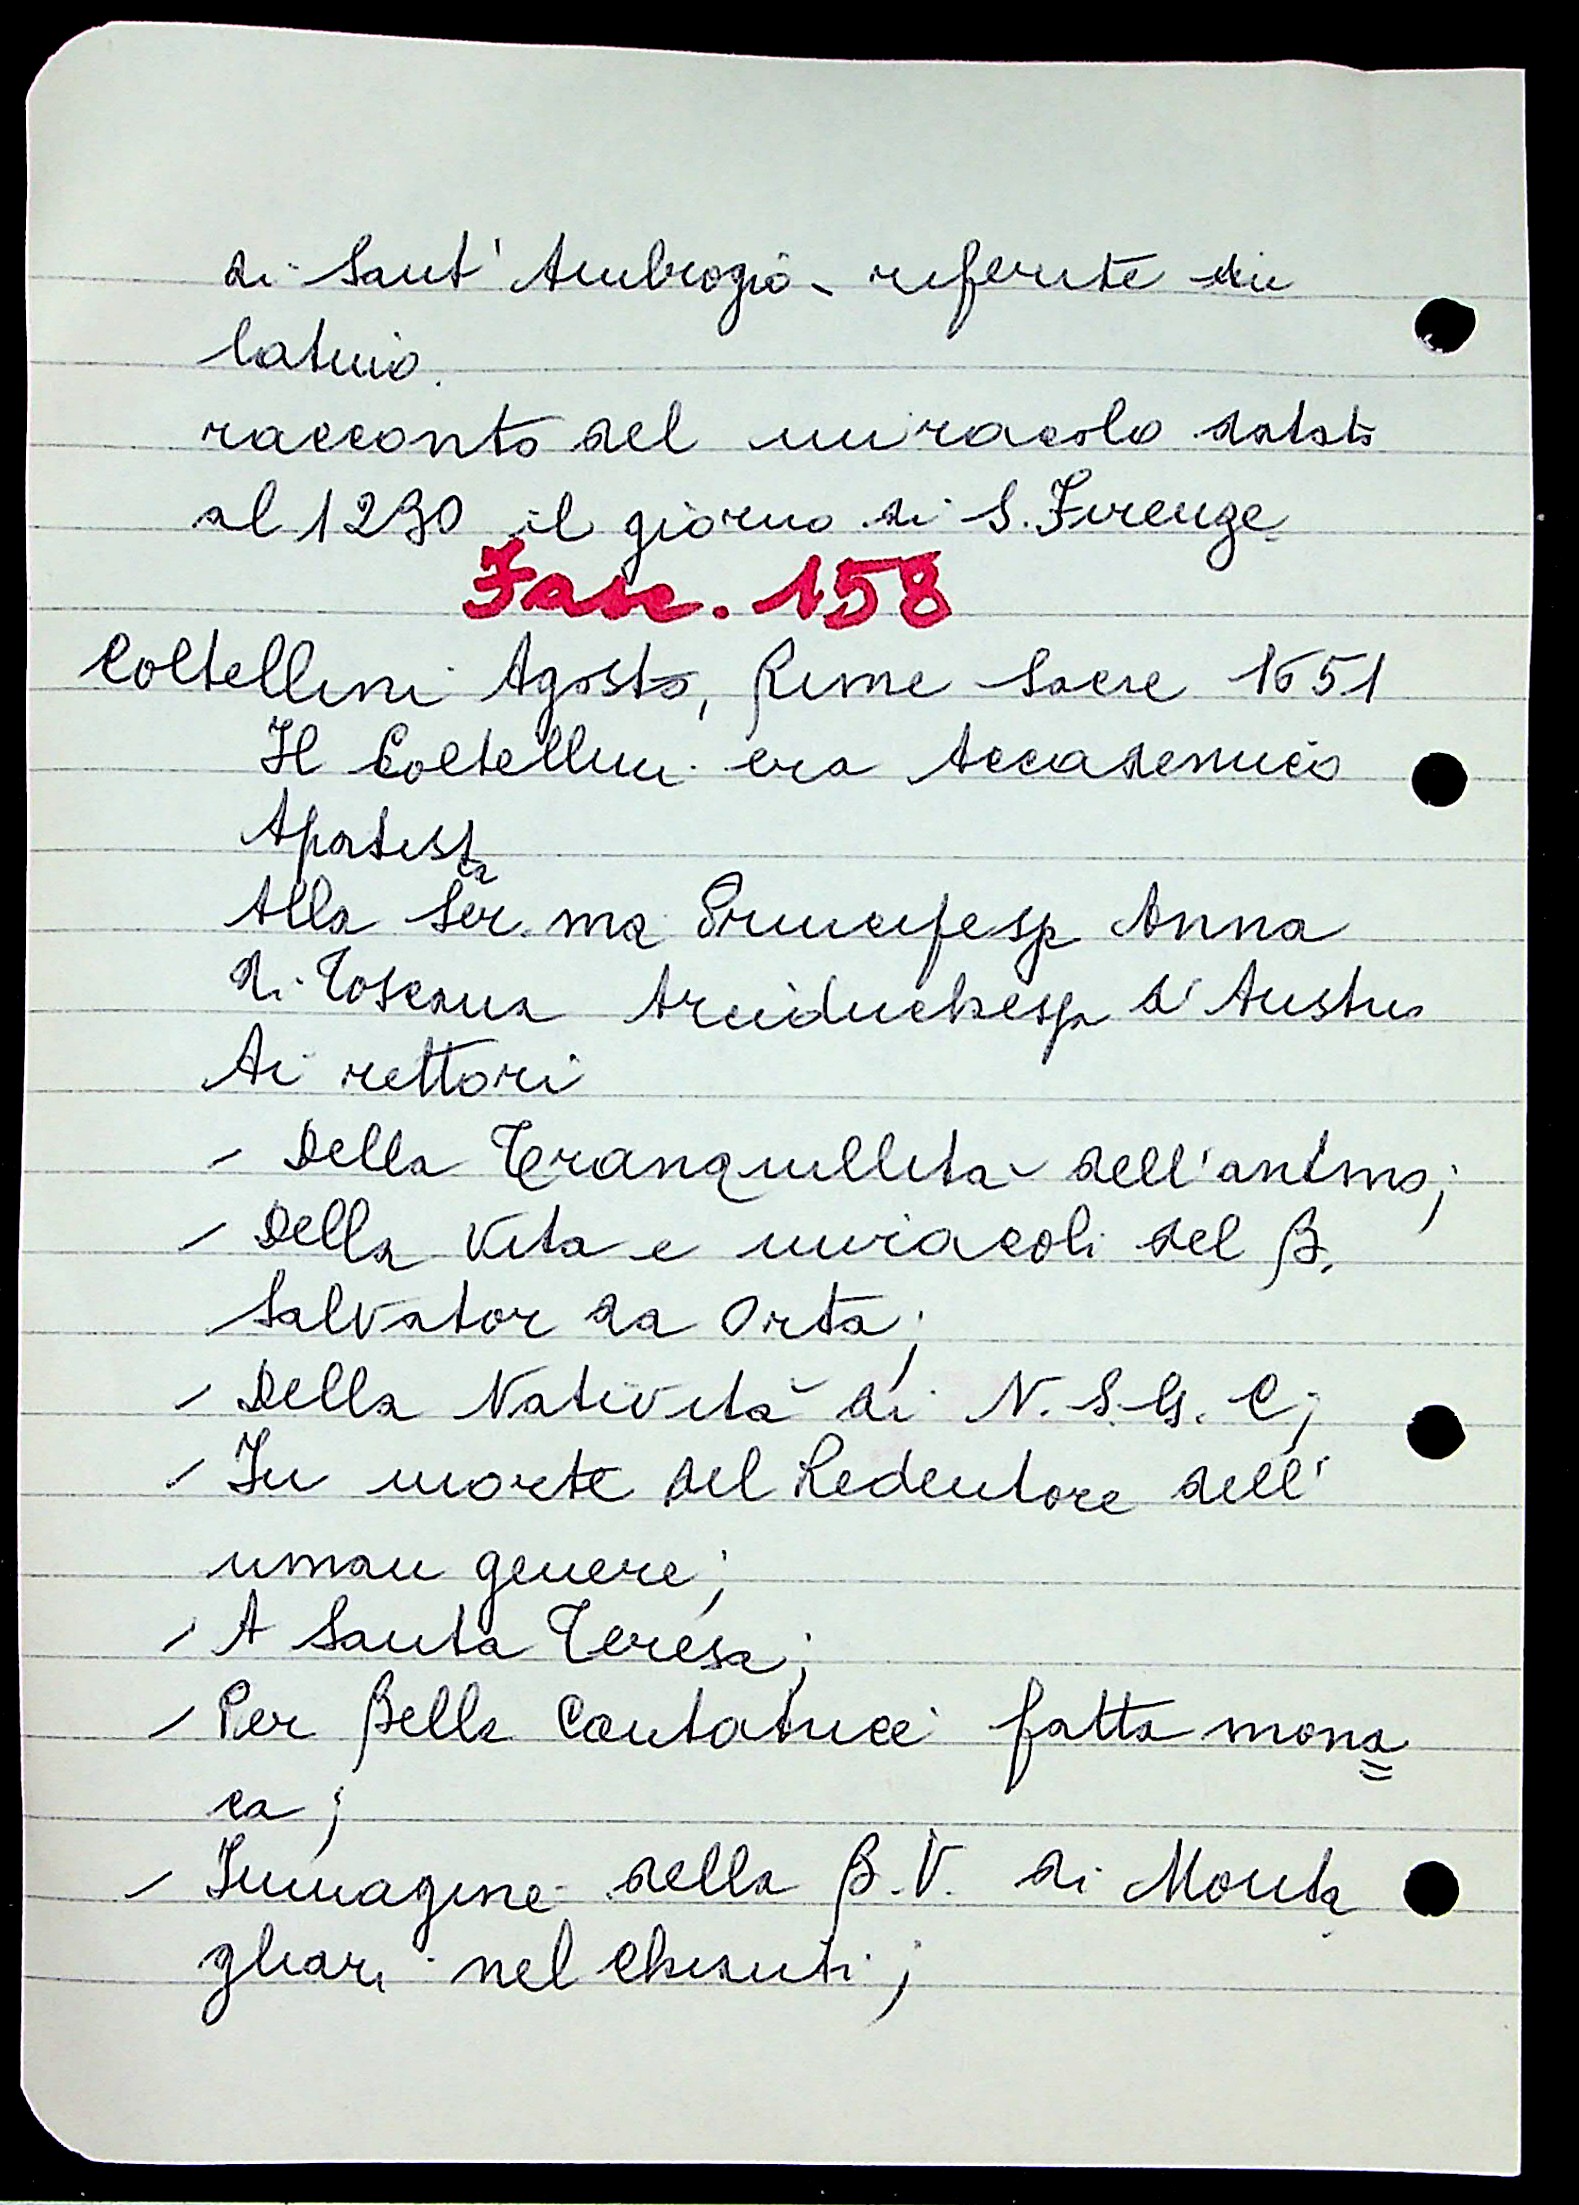 di Sant'Ambrogio - riferite in
latino.
racconto del miracolo datato
al 1230 il giorno di S. Firenze.
Fasc. 158
Coltellini Agosto, Rime Sacre 1651
Il Coltellini era Accademico
Apatista
Alla Ser.ma Principessa Anna
di Toscana Arciduchessa d'Austria
Ai rettori
- Della Tranquillità dell'animo;
- Della Vita e miracoli del B.
Salvator da Orta;
- Della Natività di N. S. G. C;
- In morte del Redentore dell'
uman genere;
- A Santa Teresa;
- Per Bella Cantatrice fatta mona=
ca;
- Immagine della B. V. di Monta
gliari nel Chianti;